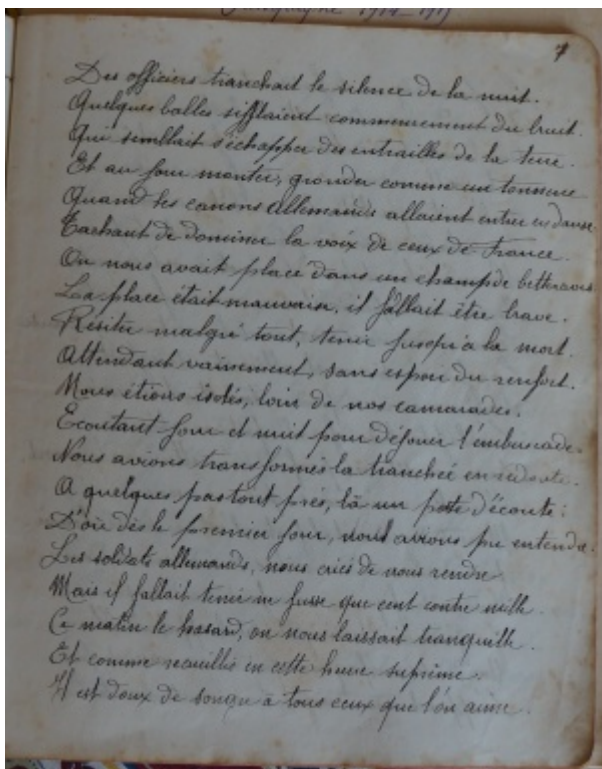 Campagne 1914-1917
7
Des officiers tranchait le silence de la nuit.
Quelques balles sifflaient commencement du bruit.
Qui semblait s'échapper des entrailles de la terre.
Et au jour monter, gronder comme un tonnerre
Quand les canons Allemands allaient entrer en danse
Tachant de dominer la voix de ceux de France.
On nous avait placé dans un champ de betteraves
La place était mauvaise, il fallait être brave.
Résiter malgré tout, tenir jusqu'à la mort.
Attendant vainement, sans espoir du renfort.
Nous étions isolés, loin de nos camarades.
Ecoutant jour et nuit pour déjouer l'embuscade.
Nous avions transformés la tranchée en redoute.
A quelques pas tout près, là un poste d'écoute :
D'où dès le premier jour, nous avions pu entendre.
Les soldats allemands, nous criés de nous rendre
Mais il fallait tenir ne fusse que cent contre mille.
Ce matin le hasard, on nous laissait tranquille.
Et comme recueillis en cette heure suprême.
Il est doux de songer à tous ceux que l'on aime.